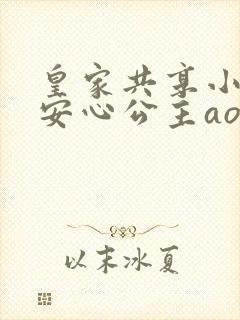 皇家共享小
安心公主ao
以末冰夏